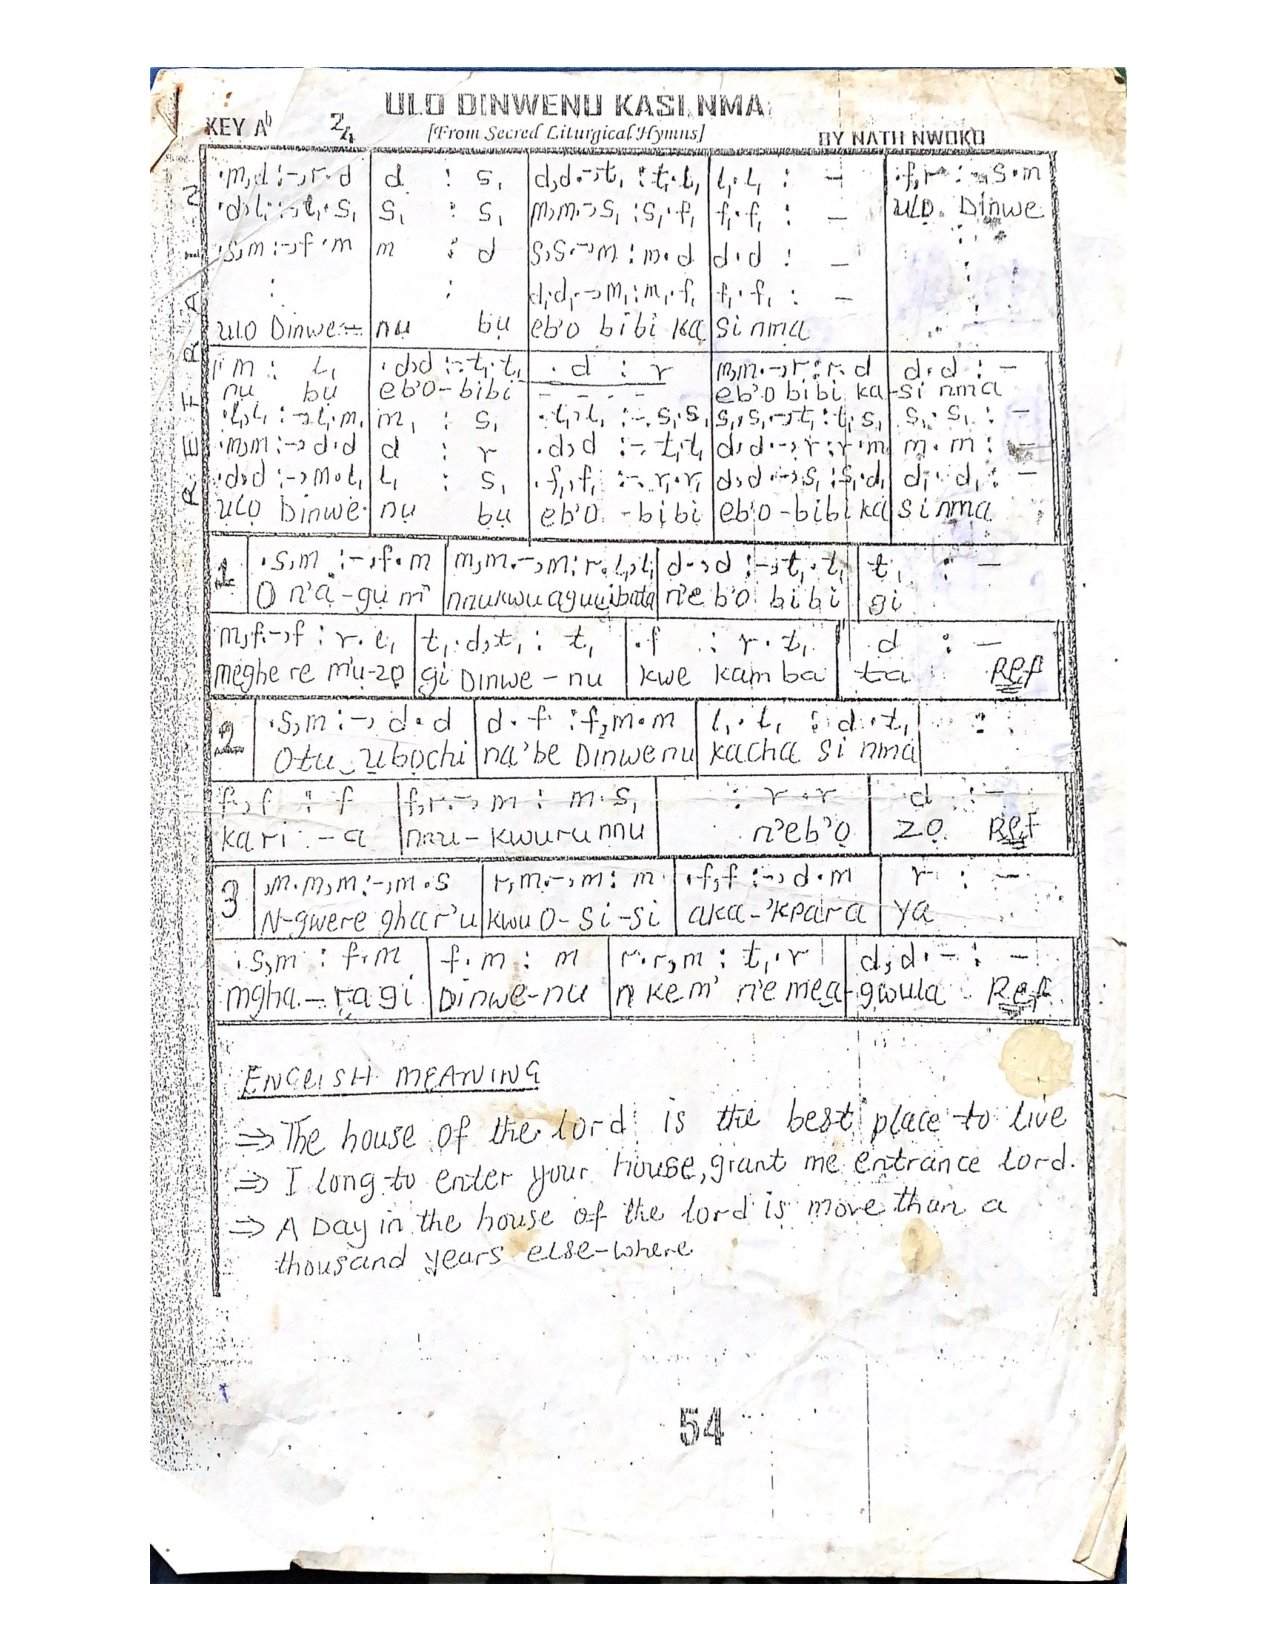 ULO DINWENU KASI NMA
KEY Ab 2/4 [From Secred Liturgical Hymns] BY NATH NWOKO
REFRAIN
.m,d :-,r.d | d : s₁ | d,d.-,t₁ : t₁.l₁ | l₁.l₁ : - | .f,r : -,s.m
.d,l₁ :-,l₁.s₁ | s₁ : s₁ | m,m.-,s₁ : s₁.f₁ | f₁.f₁ : - | ulo Dinwe
.s,m :-,f.m | m : d | s,s.-,m : m.d | d.d : -
: | : | d₁,d₁.-,m₁ : m₁.f₁ | f₁.f₁ : -
ulo Dinwe- | nụ bụ | eb'o bibi ka | si nma
m : l₁ | .d,d :-.t₁.t₁ | .d : r | m,m.-,r : r.d | d.d : -
nụ bụ | eb'o-bibi | - - - - | eb'o bibi ka | -si nma
.l₁,l₁ :-,l₁.m₁ | m₁ : s₁ | .l₁,l₁ :-.s₁.s₁ | s₁,s₁.-,t₁ : t₁.s₁ | s₁.s₁ : -
.m,m :-,d.d | d : r | .d,d :-.t₁.t₁ | d,d.-,r : r.m | m.m : -
.d,d :-,m.l₁ | l₁ : s₁ | .f₁,f₁ :-.r₁.r₁ | d,d.-,s₁ : s₁.d₁ | d₁.d₁ : -
ụlọ Dinwe- | nụ bụ | eb'o -bibi | eb'o-bibi ka | si nma
1 | .s,m :-,f.m | m,m.-,m : r.l₁,l₁ | d-,d :-,t₁.t₁ | t₁ : -
O n'a-gu m | nnukwu aguụ ibata | n'e b'o bibi | gi
m,f.-,f : r.l₁ | t₁.d,t₁ : t₁ | .f : r.t₁ | d : -
meghe re m'ụ-zọ | gi Dinwe-nu | kwe kam ba | ta Ref
2 | .s,m :-,d.d | d.f : f,m.m | l₁.l₁ : d.t₁ | :
Otu ụbọchi | nạ'be Dinwenu | kacha si nma
f,f : f | f,r.-,m : m.s₁ | : r.r | d : -
ka ri -a | nnu-kwuru nnu | n'eb'ọ | zọ Ref
3 | ,m.m,m :-,m.s | r,m.-,m : m | .f,f :-,d.m | r : -
N-gwere ghar'u | kwu O-si-si | aka-'kpara | ya
.s,m : f.m | f.m : m | r.r,m : t₁.r | d,d.- : -
mgha-ra gi | Dinwe-nu | n kem' n'e mea- | gwula Ref
ENGLISH MEANING
⇒ The house of the lord is the best place to live
⇒ I long to enter your house, grant me entrance lord.
⇒ A Day in the house of the lord is more than a
thousand years else-where
54